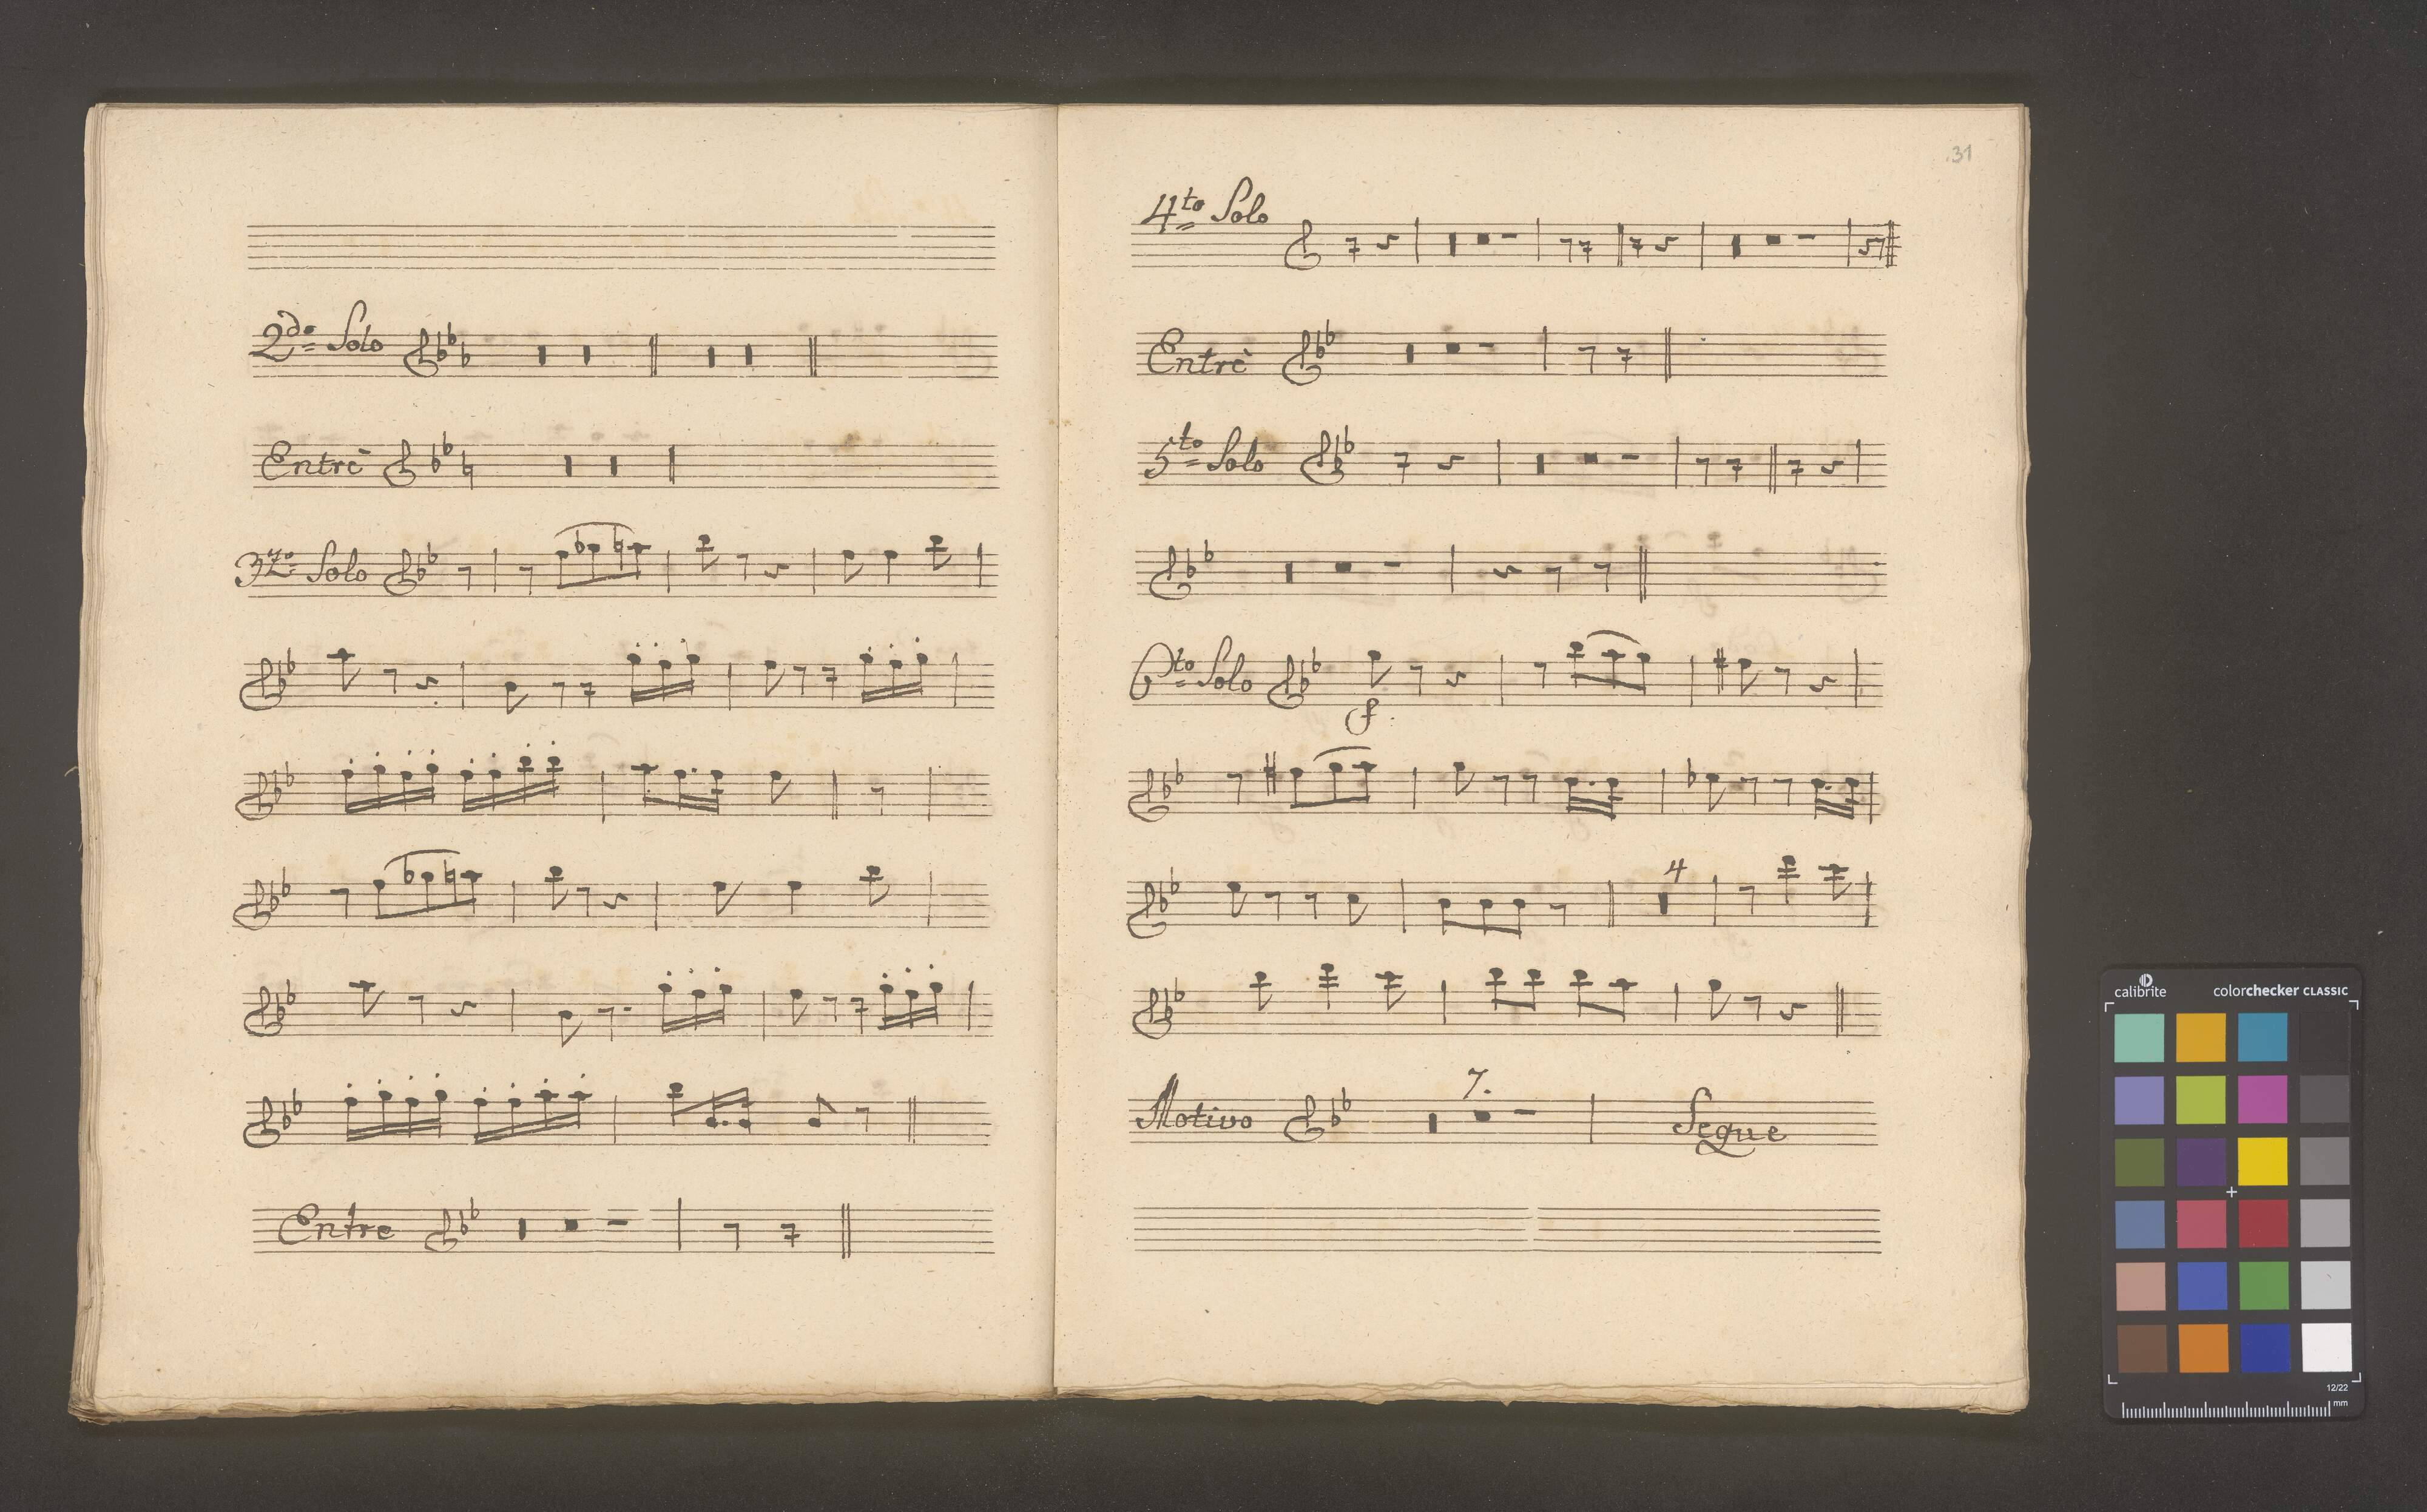 2do Solo
Entrè
3zo Solo
Entre
31
4to Solo
Entrè
5to Solo
6to Solo
f:
4
Motivo 7. Segue
calibrite colorchecker CLASSIC
12/22
mm